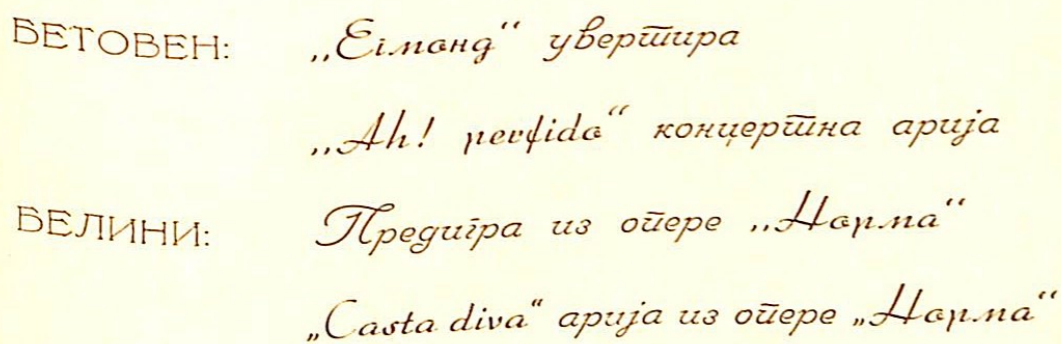 БЕТОВЕН: „Егмонд“ увертира
„Ah! perfido“ концертна арија
БЕЛИНИ: Предигра из опере „Норма“
„Casta diva“ арија из опере „Норма“